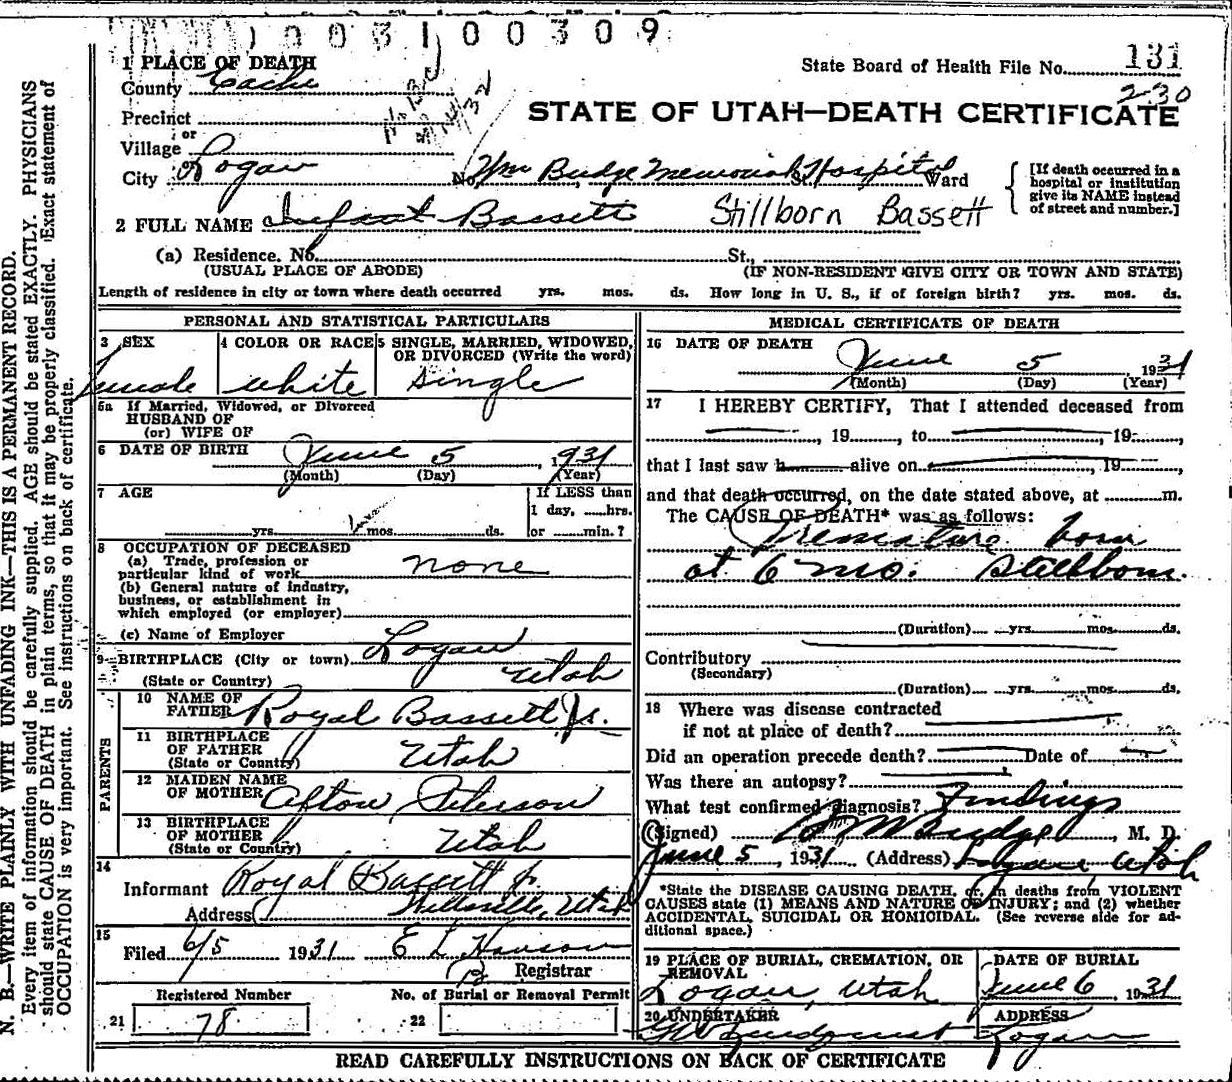 1003100309
1 PLACE OF DEATH
State Board of Health File No. 131
County Cache
230
STATE OF UTAH—DEATH CERTIFICATE
Precinct
or
Village
City Logan No. Wm Budge Memorial St. Hospital Ward
[If death occurred in a hospital or institution give its NAME instead of street and number.]
2 FULL NAME Infant Bassett Stillborn Bassett
(a) Residence. No. St.,
(USUAL PLACE OF ABODE) (IF NON-RESIDENT GIVE CITY OR TOWN AND STATE)
Length of residence in city or town where death occurred yrs. mos. ds. How long in U. S., if of foreign birth? yrs. mos. ds.
PERSONAL AND STATISTICAL PARTICULARS
3 SEX 4 COLOR OR RACE 5 SINGLE, MARRIED, WIDOWED,
OR DIVORCED (Write the word)
Female white single
5a If Married, Widowed, or Divorced
HUSBAND OF
(or) WIFE OF
6 DATE OF BIRTH June 5, 1931
(Month) (Day) (Year)
7 AGE If LESS than
1 day, hrs.
yrs. mos. ds. or min.?
8 OCCUPATION OF DECEASED
(a) Trade, profession or
particular kind of work none
(b) General nature of industry,
business, or establishment in
which employed (or employer)
(c) Name of Employer
9 BIRTHPLACE (City or town) Logan
(State or Country) Utah
PARENTS
10 NAME OF
FATHER Royal Bassett Jr.
11 BIRTHPLACE
OF FATHER
(State or Country) Utah
12 MAIDEN NAME
OF MOTHER Afton Peterson
13 BIRTHPLACE
OF MOTHER
(State or Country) Utah
14
Informant Royal Bassett Jr
Address Utah
15
Filed 6/5 1931 E L Hanson
Registrar
Registered Number No. of Burial or Removal Permit
21 78 22
MEDICAL CERTIFICATE OF DEATH
16 DATE OF DEATH
June 5, 1931
(Month) (Day) (Year)
17 I HEREBY CERTIFY, That I attended deceased from
, 19 , to , 19 ,
that I last saw h alive on , 19 ,
and that death occurred, on the date stated above, at m.
The CAUSE OF DEATH* was as follows:
Premature born
at 6 mo. Stillborn.
(Duration) yrs. mos. ds.
Contributory
(Secondary)
(Duration) yrs. mos. ds.
18 Where was disease contracted
if not at place of death?
Did an operation precede death? Date of
Was there an autopsy?
What test confirmed diagnosis? Findings
(Signed) Budge, M. D.
June 5, 1931 (Address) Logan Utah
*State the DISEASE CAUSING DEATH, or, in deaths from VIOLENT
CAUSES state (1) MEANS AND NATURE OF INJURY; and (2) whether
ACCIDENTAL, SUICIDAL OR HOMICIDAL. (See reverse side for ad-
ditional space.)
19 PLACE OF BURIAL, CREMATION, OR DATE OF BURIAL
REMOVAL
Logan, Utah June 6, 1931
20 UNDERTAKER ADDRESS
Lindquist Logan
READ CAREFULLY INSTRUCTIONS ON BACK OF CERTIFICATE
N. B.—WRITE PLAINLY WITH UNFADING INK—THIS IS A PERMANENT RECORD.
Every item of information should be carefully supplied. AGE should be stated EXACTLY. PHYSICIANS
should state CAUSE OF DEATH in plain terms, so that it may be properly classified. Exact statement of
OCCUPATION is very important. See instructions on back of certificate.